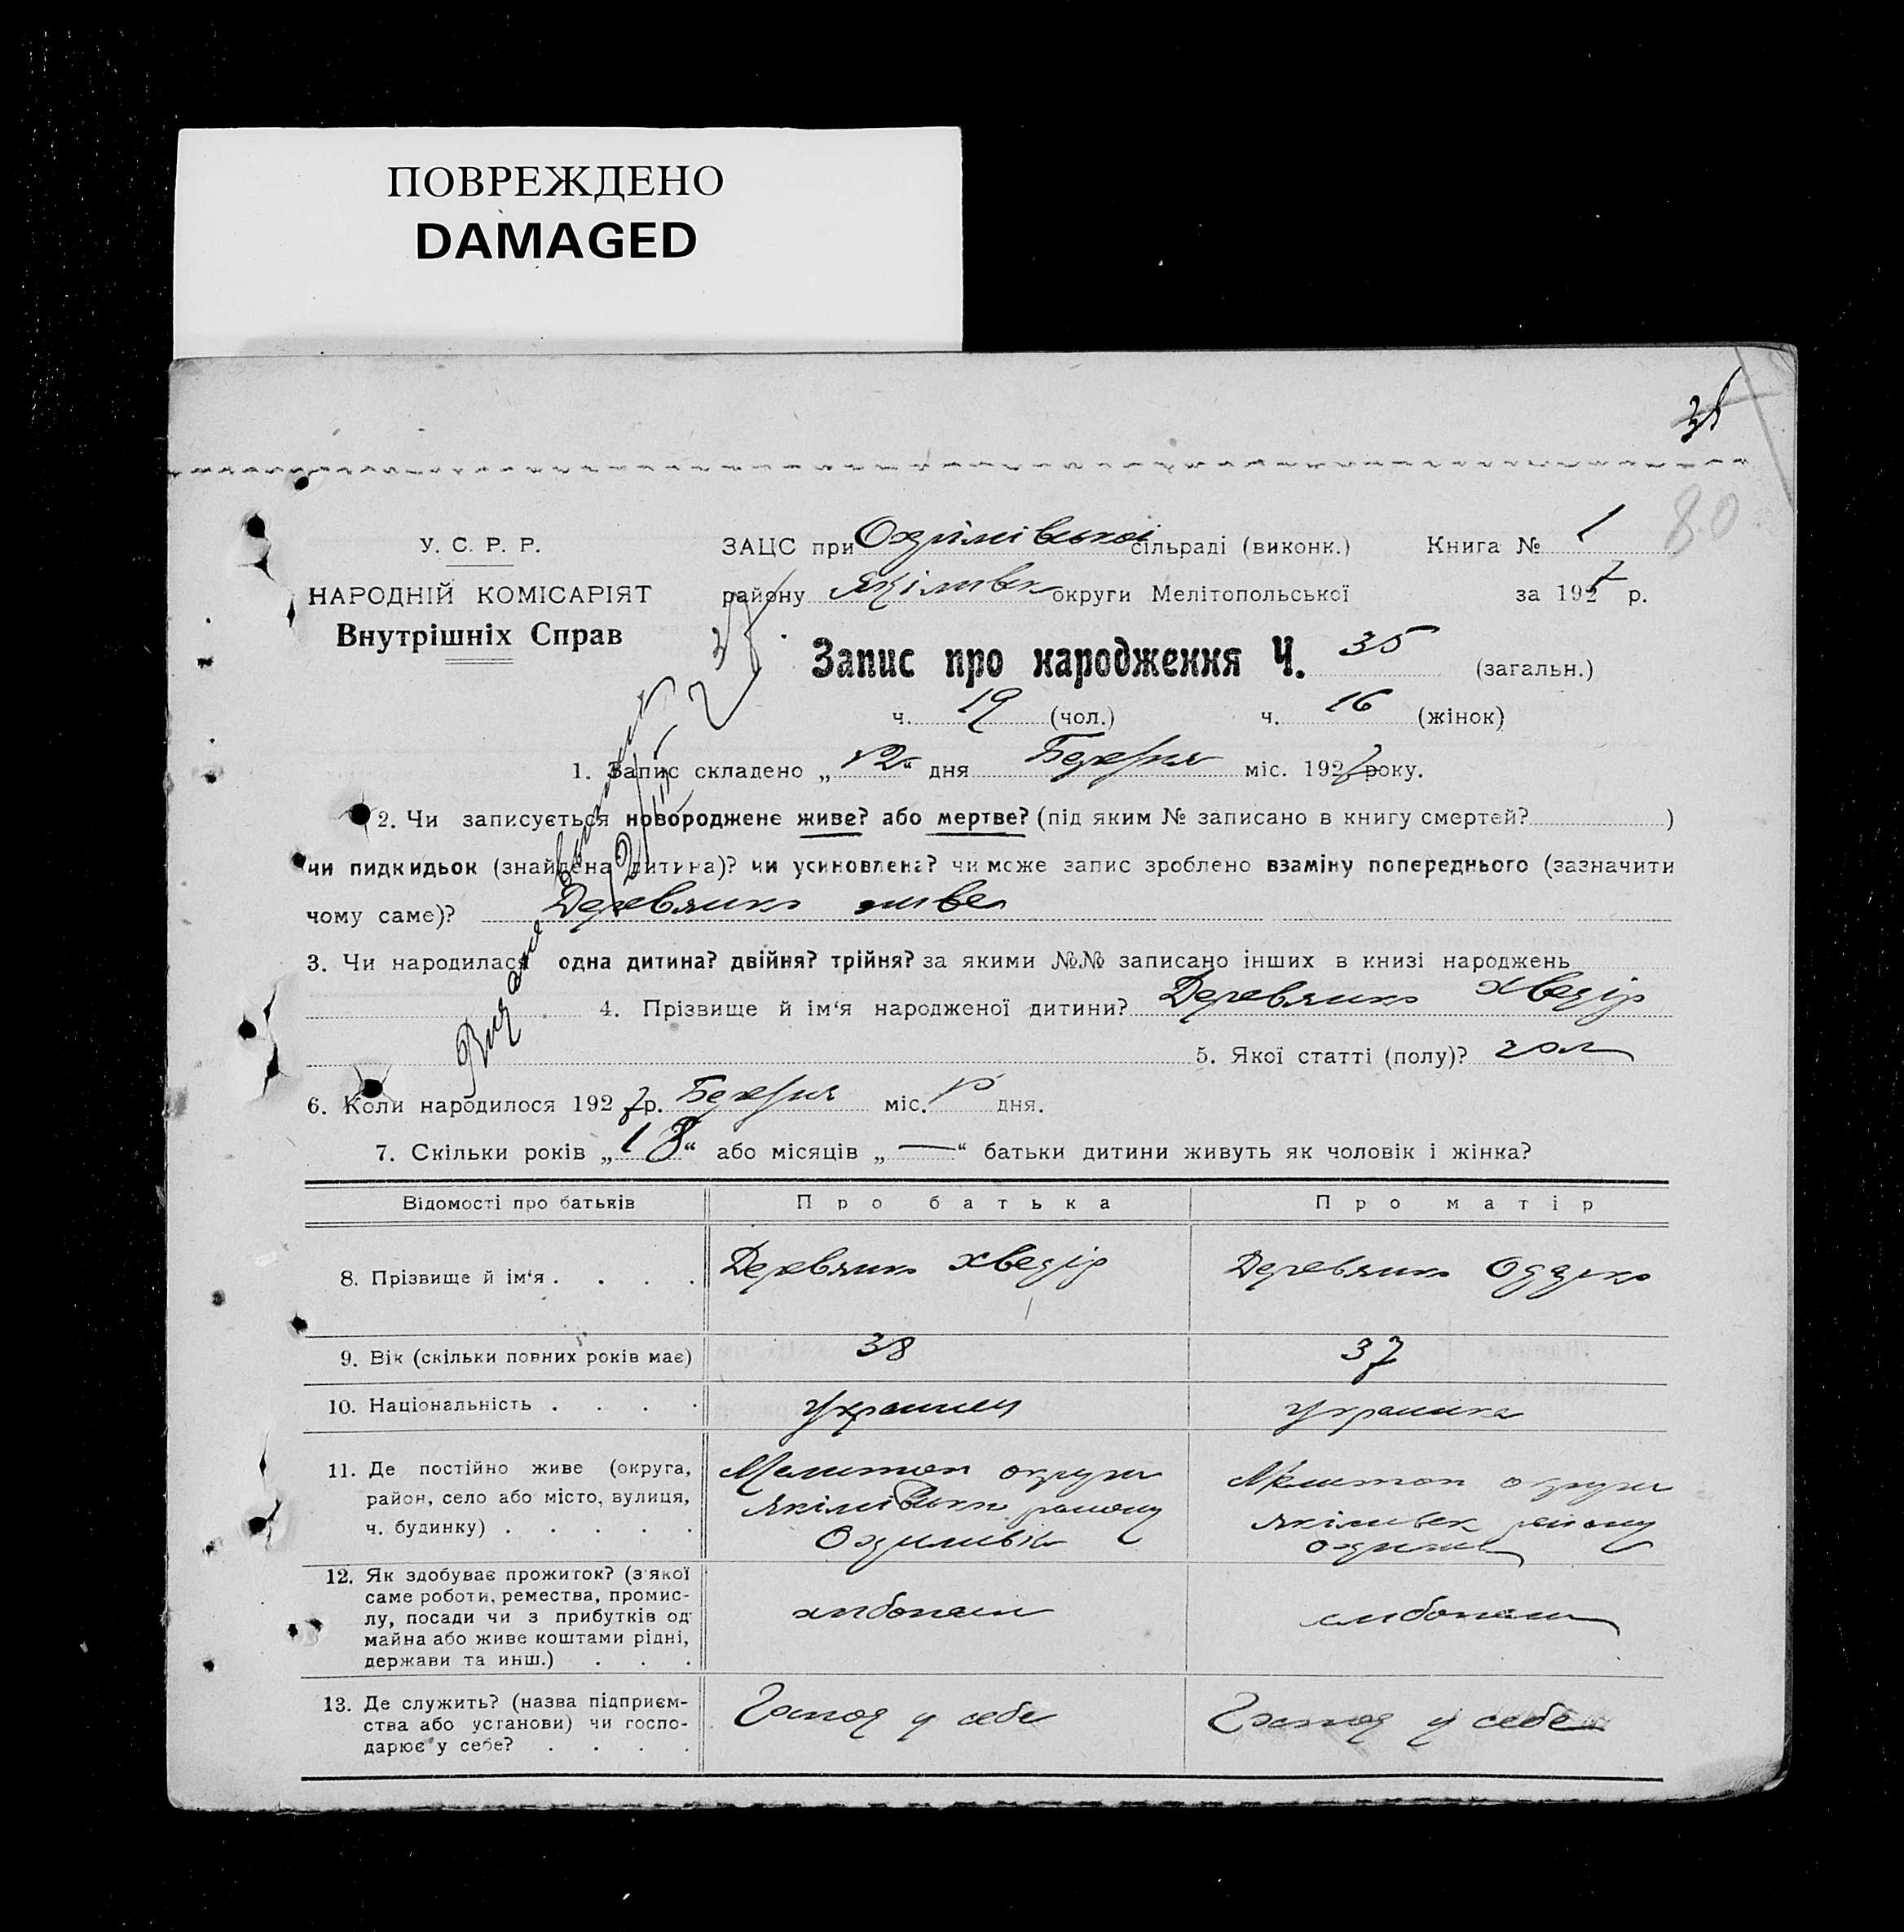 ПОВРЕЖДЕНО
DAMAGED
80
У. С. Р. Р.
НАРОДНІЙ КОМІСАРІЯТ
Внутрішніх Справ
ЗАЦС при Охримівської сільраді (виконк.) Книга № 1
району Якімівськ округи Мелітопольської за 1927 р.
Запис про народження Ч. 35 (загальн.)
ч. 19 (чол.) ч. 16 (жінок)
1. Запис складено „12“ дня Березня міс. 1927 року.
2. Чи записується новороджене живе? або мертве? (під яким № записано в книгу смертей? )
чи пидкидьок (знайдена дитина)? чи усиновлена? чи може запис зроблено взаміну попереднього (зазначити
чому саме)? Деревянко живе
3. Чи народилася одна дитина? двійня? трійня? за якими №№ записано інших в книзі народжень
4. Прізвище й ім‘я народженої дитини? Деревянко Хведір
5. Якої статті (полу)? чол
6. Коли народилося 1927 р. Березня міс. дня.
7. Скільки років „18“ або місяців „—“ батьки дитини живуть як чоловік і жінка?
Відомості про батьків Про батька Про матір
8. Прізвище й ім‘я . . . . Деревянко Хведір Деревянко
9. Вік (скільки повних років має) 38 37
10. Національність . . . . Українец Українка
11. Де постійно живе (округа, Мелитоп округи Мелитоп округи
район, село або місто, вулиця, Якімівськ району Якімівськ району
ч. будинку) . . . . . Охримівка
12. Як здобуває прожиток? (з якої
саме роботи, ремества, промис-
лу, посади чи з прибутків од
майна або живе коштами рідні,
держави та инш.) . . .
хлібопаш хлібопаш
13. Де служить? (назва підприєм-
ства або установи) чи госпо-
дарює у себе? . . . .
Господ у себе Господ у себе